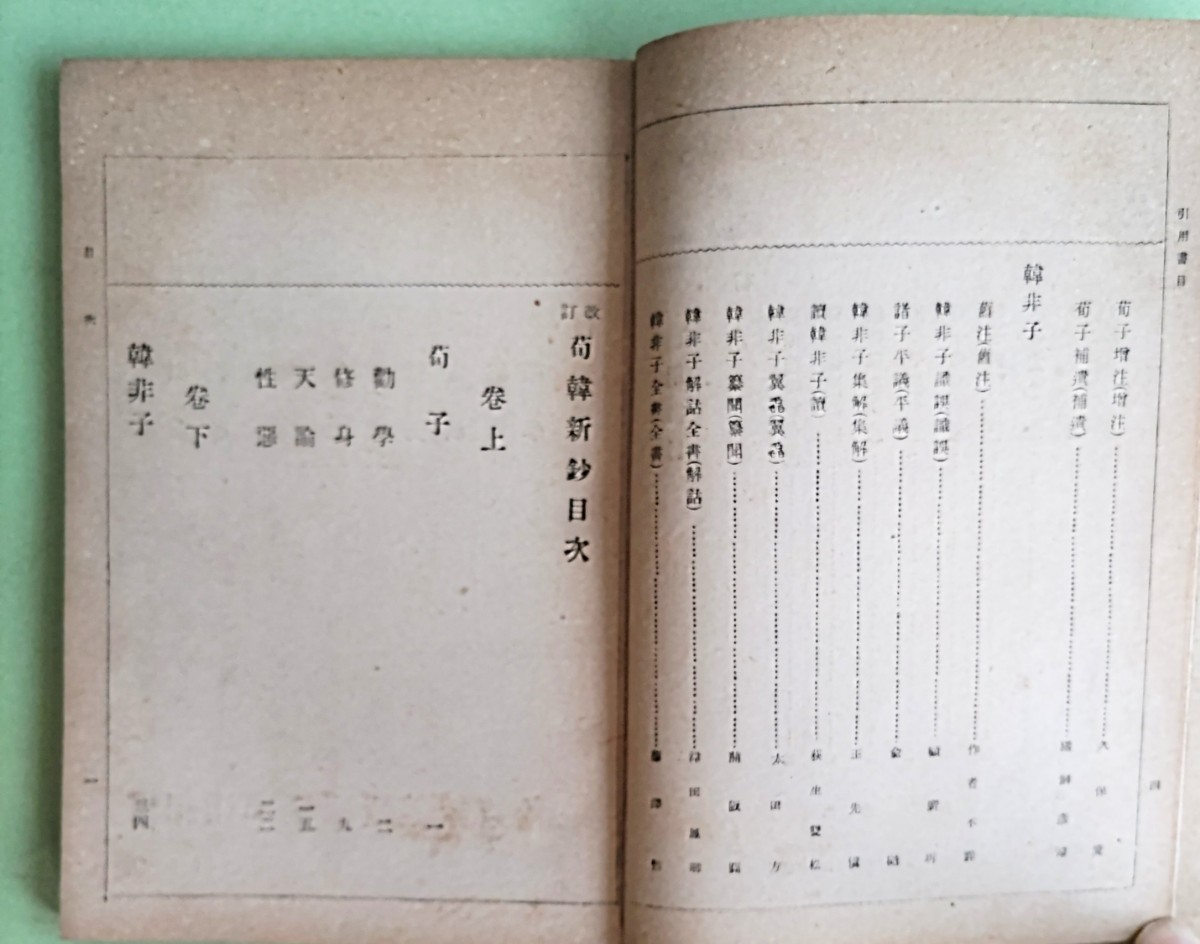 引用書目
荀子增注(增注)……久保愛
荀子補遺(補遺)
韓非子
舊注(舊注)……作者不詳
韓非子識誤(識誤)……顧廣圻
諸子平議(平議)……兪樾
韓非子集解(集解)……王先愼
讀韓非子(讀)……荻生雙松
韓非子翼毳(翼毳)……太田方
韓非子纂聞(纂聞)……蒲阪圓
韓非子解詁全書(解詁)
韓非子全書(全書)……藤澤
四
改訂 荀韓新鈔目次
卷上
荀子 一
勸學 二
修身 九
天論 一五
性惡 二二
卷下
韓非子
目次
一